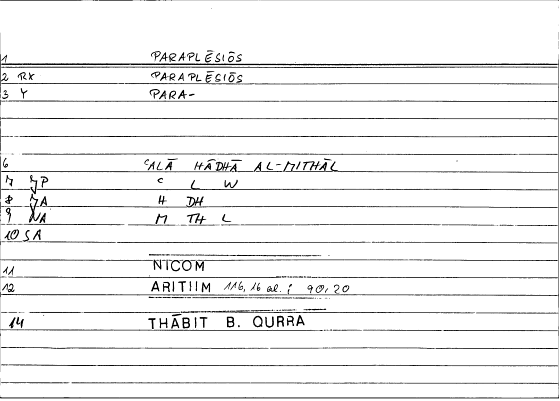 1 PARAPLĒSIŌS
2 RX PARAPLĒSIŌS
3 Y PARA-
6 ʿALĀ HĀDHĀ AL-MITHĀL
7 ʿ L W
8 H DH
9 NA M TH L
10 SA
11 NICOM
12 ARITIIM 116,16 al.; 90,20
14 THĀBIT B. QURRA